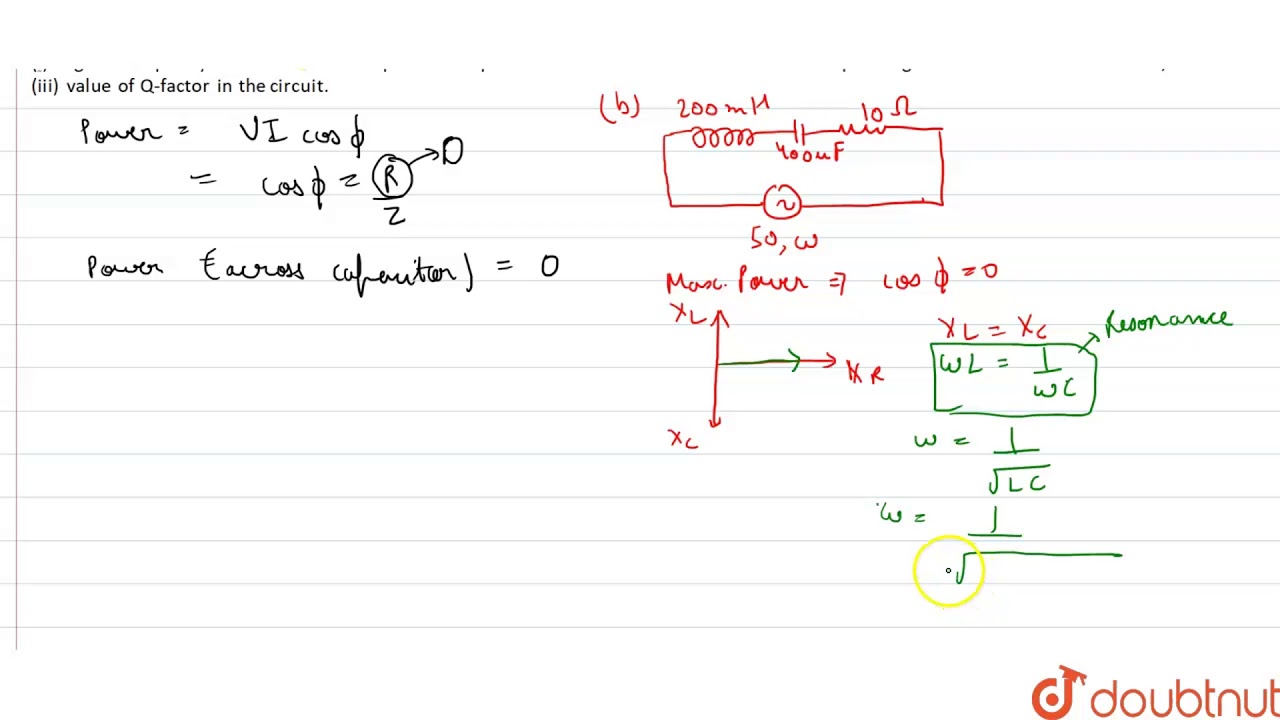 (iii) value of Q-factor in the circuit.
Power = VI cosϕ
= cosϕ = R/Z → 0
Power (across capacitor) = 0
(b)
200mH
400uF
10Ω
50, ω
Max. Power ⇒ cosϕ = 0
XL
XR
XC
XL = XC
ωL = 1/ωC
Resonance
ω = 1/√LC
ω = 1/√
doubtnut